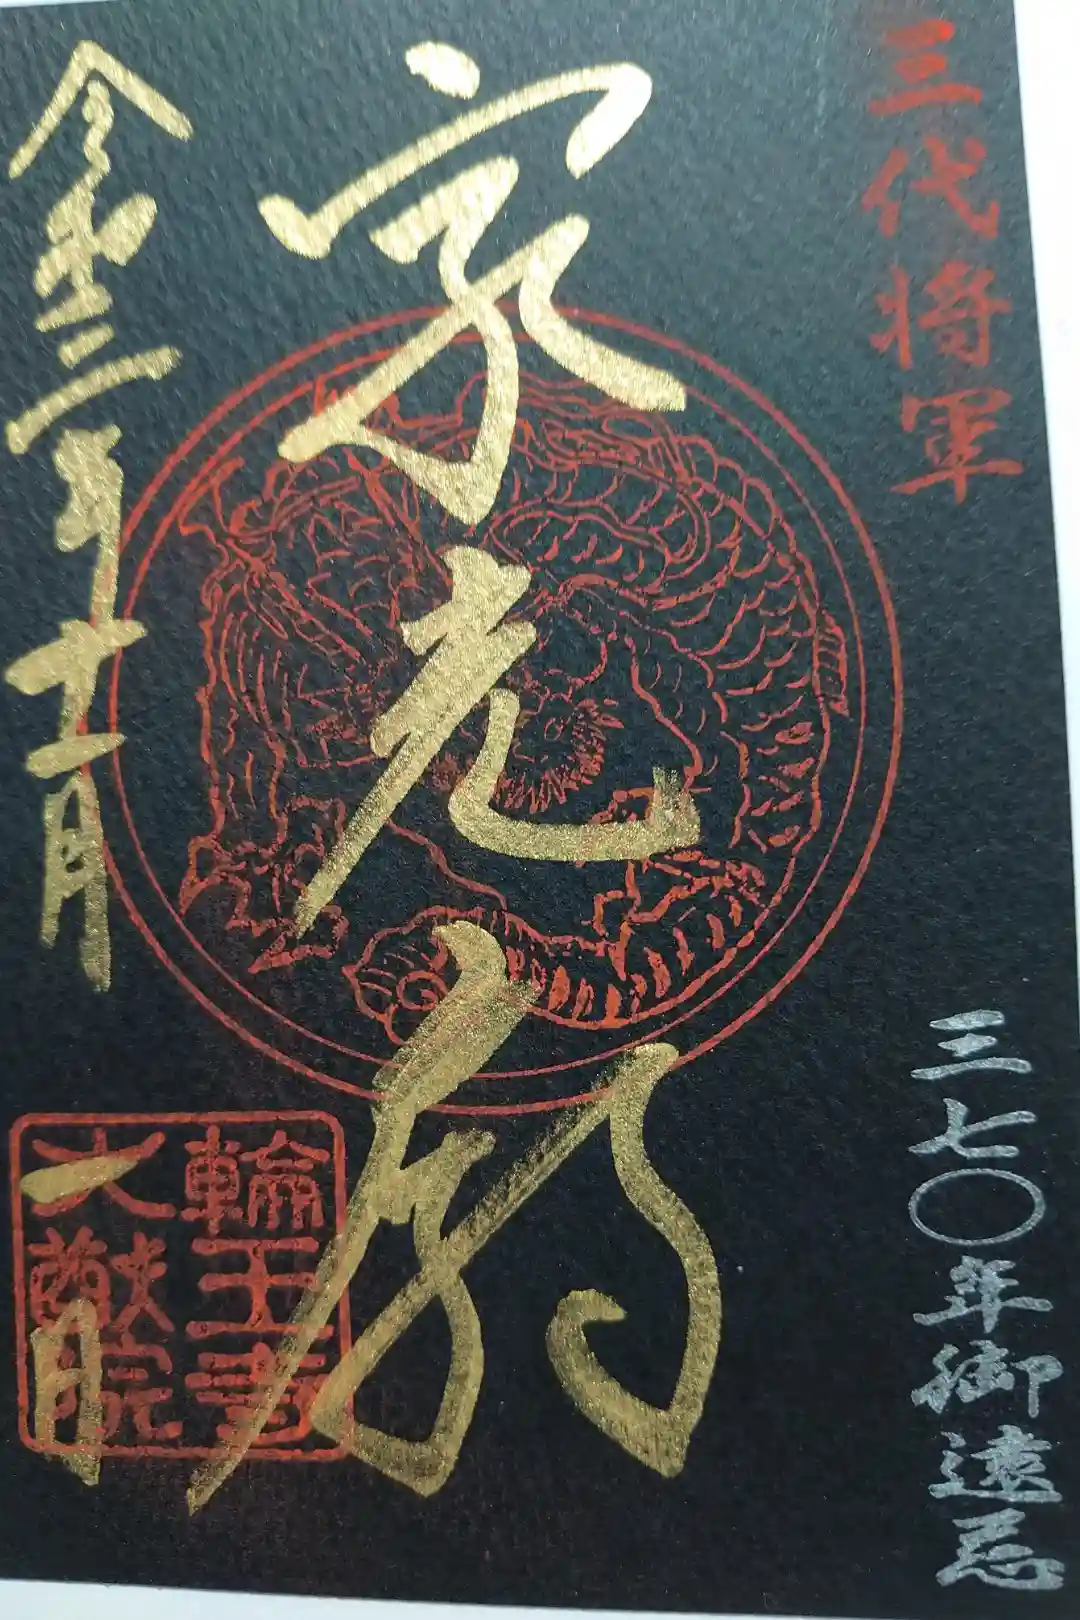 三代将軍
三七〇年御遠忌
家光廟
令和三年十一月一日
輪王寺
大猷院